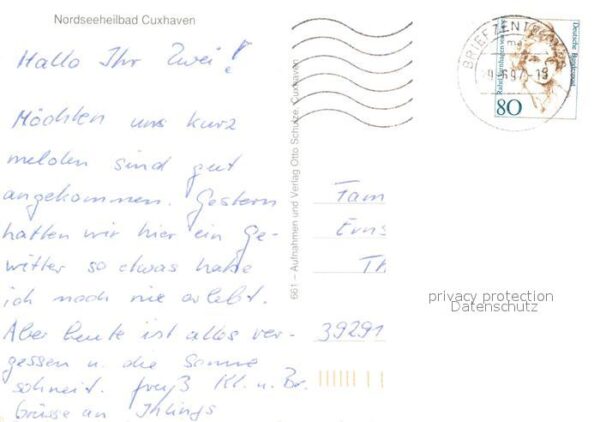 Nordseeheilbad Cuxhaven
Hallo Ihr Zwei!
Möchten uns kurz
melden sind gut
angekommen. Gestern
hatten wir hier ein Ge-
witter so etwas habe
ich noch nie erlebt.
Aber heute ist alles ver-
gessen u. die Sonne
schneit. Gruß Kl. u. Br.
Grüsse an Ihlings
661 – Aufnahmen und Verlag Otto Schulze, Cuxhaven
BRIEFZENTRUM
.6.97-19
Deutsche Bundespost
80
Fam
Erns
Th
39291
privacy protection
Datenschutz